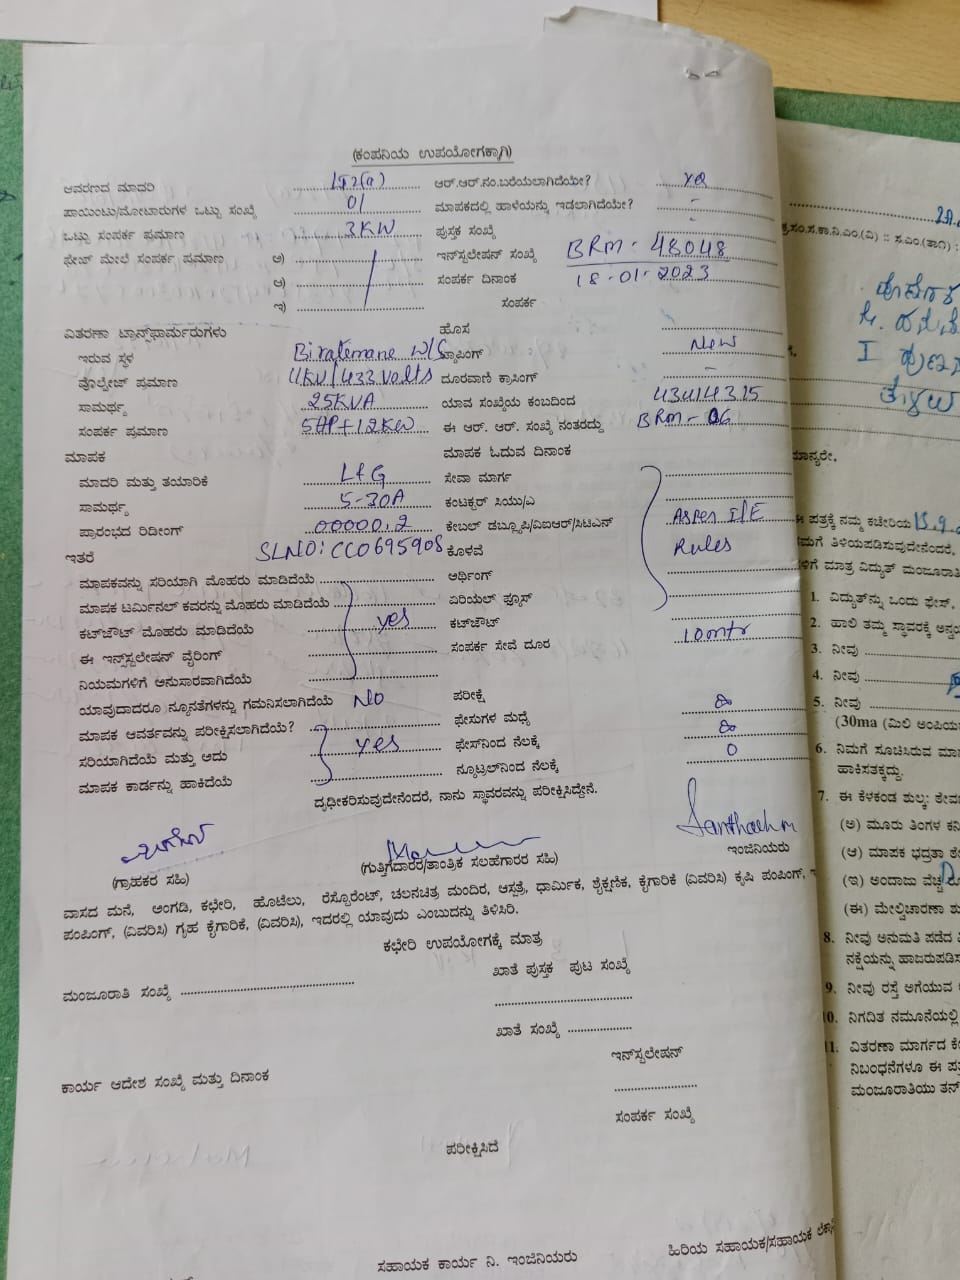 (ಕಂಪನಿಯ ಉಪಯೋಗಕ್ಕಾಗಿ)
ಆವರಣದ ಮಾದರಿ ಆರ್.ಆರ್.ನಂ.ಬರೆಯಲಾಗಿದೆಯೇ?
ಪಾಯಿಂಟು/ಮೋಟಾರುಗಳ ಒಟ್ಟು ಸಂಖ್ಯೆ 01 ಮಾಪಕದಲ್ಲಿ ಹಾಳೆಯನ್ನು ಇಡಲಾಗಿದೆಯೇ? -
ಒಟ್ಟು ಸಂಪರ್ಕ ಪ್ರಮಾಣ 3KW ಪುಸ್ತಕ ಸಂಖ್ಯೆ -
ಫೇಜ್ ಮೇಲೆ ಸಂಪರ್ಕ ಪ್ರಮಾಣ ಅ) ಇನ್‌ಸ್ಟಲೇಷನ್ ಸಂಖ್ಯೆ BRM - 48048
ಆ) ಸಂಪರ್ಕ ದಿನಾಂಕ 18-01-2023
ಇ) ಸಂಪರ್ಕ
ವಿತರಣಾ ಟ್ರಾನ್ಸ್‌ಫಾರ್ಮರುಗಳು ಹೊಸ
ಇರುವ ಸ್ಥಳ Biratemane W/S ಟ್ಯಾಪಿಂಗ್ New
ವೊಲ್ಟೇಜ್ ಪ್ರಮಾಣ 11KV/433 Volts ದೂರವಾಣಿ ಕ್ರಾಸಿಂಗ್ -
ಸಾಮರ್ಥ್ಯ 25KVA ಯಾವ ಸಂಖ್ಯೆಯ ಕಂಬದಿಂದ
ಸಂಪರ್ಕ ಪ್ರಮಾಣ 5HP+12KW ಈ ಆರ್. ಆರ್. ಸಂಖ್ಯೆ ನಂತರದ್ದು BRM - 06
ಮಾಪಕ ಮಾಪಕ ಓದುವ ದಿನಾಂಕ
ಮಾದರಿ ಮತ್ತು ತಯಾರಿಕೆ L&G ಸೇವಾ ಮಾರ್ಗ
ಸಾಮರ್ಥ್ಯ 5-30A ಕಂಟಕ್ಟರ್ ಸಿಯು/ಎ
ಪ್ರಾರಂಭದ ರಿಡಿಂಗ್ 00000.2 ಕೇಬಲ್ ಡಬ್ಲ್ಯೂಪಿ/ವಿಐಆರ್/ಸಿಟಿಎಸ್ As per I/E
ಇತರೆ SLNO: CC0695908 ಕೊಳವೆ Rules
ಮಾಪಕವನ್ನು ಸರಿಯಾಗಿ ಮೊಹರು ಮಾಡಿದೆಯೆ ಅರ್ಥಿಂಗ್
ಮಾಪಕ ಟರ್ಮಿನಲ್ ಕವರನ್ನು ಮೊಹರು ಮಾಡಿದೆಯೆ ಏರಿಯಲ್ ಫ್ಯೂಸ್
ಕಟ್‌ಔಟ್ ಮೊಹರು ಮಾಡಿದೆಯೆ yes ಕಟ್‌ಔಟ್
ಈ ಇನ್ಸ್‌ಸ್ಟಲೇಷನ್ ವೈರಿಂಗ್ ಸಂಪರ್ಕ ಸೇವೆ ದೂರ 10mtr
ನಿಯಮಗಳಿಗೆ ಅನುಸಾರವಾಗಿದೆಯೆ
ಯಾವುದಾದರೂ ನ್ಯೂನತೆಗಳನ್ನು ಗಮನಿಸಲಾಗಿದೆಯೆ No ಪರೀಕ್ಷೆ
ಮಾಪಕ ಆವರ್ತವನ್ನು ಪರೀಕ್ಷಿಸಲಾಗಿದೆಯೆ? ಫೇಸುಗಳ ಮಧ್ಯೆ ∞
ಸರಿಯಾಗಿದೆಯೆ ಮತ್ತು ಅದು yes ಫೇಸ್‌ನಿಂದ ನೆಲಕ್ಕೆ ∞
ಮಾಪಕ ಕಾರ್ಡನ್ನು ಹಾಕಿದೆಯೆ ನ್ಯೂಟ್ರಲ್‌ನಿಂದ ನೆಲಕ್ಕೆ 0
ದೃಢೀಕರಿಸುವುದೇನೆಂದರೆ, ನಾನು ಸ್ಥಾವರವನ್ನು ಪರೀಕ್ಷಿಸಿದ್ದೇನೆ.
(ಗ್ರಾಹಕರ ಸಹಿ) (ಗುತ್ತಿಗೆದಾರರ/ತಾಂತ್ರಿಕ ಸಲಹೆಗಾರರ ಸಹಿ) ಇಂಜಿನಿಯರು
ವಾಸದ ಮನೆ, ಅಂಗಡಿ, ಕಛೇರಿ, ಹೊಟೆಲು, ರೆಸ್ಟೋರೆಂಟ್, ಚಲನಚಿತ್ರ ಮಂದಿರ, ಆಸ್ಪತ್ರೆ, ಧಾರ್ಮಿಕ, ಶೈಕ್ಷಣಿಕ, ಕೈಗಾರಿಕೆ (ವಿವರಿಸಿ) ಕೃಷಿ ಪಂಪಿಂಗ್,
ಪಂಪಿಂಗ್, (ವಿವರಿಸಿ) ಗೃಹ ಕೈಗಾರಿಕೆ, (ವಿವರಿಸಿ), ಇದರಲ್ಲಿ ಯಾವುದು ಎಂಬುದನ್ನು ತಿಳಿಸಿರಿ.
ಕಛೇರಿ ಉಪಯೋಗಕ್ಕೆ ಮಾತ್ರ
ಖಾತೆ ಪುಸ್ತಕ ಪುಟ ಸಂಖ್ಯೆ
ಮಂಜೂರಾತಿ ಸಂಖ್ಯೆ
ಖಾತೆ ಸಂಖ್ಯೆ
ಇನ್‌ಸ್ಟಲೇಷನ್
ಕಾರ್ಯ ಆದೇಶ ಸಂಖ್ಯೆ ಮತ್ತು ದಿನಾಂಕ
ಸಂಪರ್ಕ ಸಂಖ್ಯೆ
ಪರೀಕ್ಷಿಸಿದೆ
ಸಹಾಯಕ ಕಾರ್ಯ ನಿ. ಇಂಜಿನಿಯರು ಹಿರಿಯ ಸಹಾಯಕ/ಸಹಾಯಕ
ಮಾನ್ಯರೇ,
ಈ ಪತ್ರಕ್ಕೆ ನಮ್ಮ ಕಚೇರಿಯ
1. ವಿದ್ಯುತ್‌ನ್ನು ಒಂದು ಫೇಸ್,
2. ಹಾಲಿ ತಮ್ಮ ಸ್ಥಾವರಕ್ಕೆ
3. ನೀವು
4. ನೀವು
5. ನೀವು
(30ma (ಮಿಲಿ
6. ನಿಮಗೆ ಸೂಚಿಸಿರುವ
ಹಾಕಿಸತಕ್ಕದ್ದು.
7. ಈ ಕೆಳಕಂಡ ಶುಲ್ಕ:
(ಅ) ಮೂರು ತಿಂಗಳ
(ಆ) ಮಾಪಕ ಭದ್ರತಾ
(ಇ) ಅಂದಾಜು ವೆಚ್ಚ
(ಈ) ಮೇಲ್ವಿಚಾರಣಾ
8. ನೀವು ಅನುಮತಿ ಪಡೆದ
9. ನೀವು ರಸ್ತೆ ಅಗೆಯುವ
10. ನಿಗದಿತ ನಮೂನೆಯಲ್ಲಿ
11. ವಿತರಣಾ ಮಾರ್ಗದ
ನಿಬಂಧನೆಗಳೂ ಈ
ಮಂಜೂರಾತಿಯು